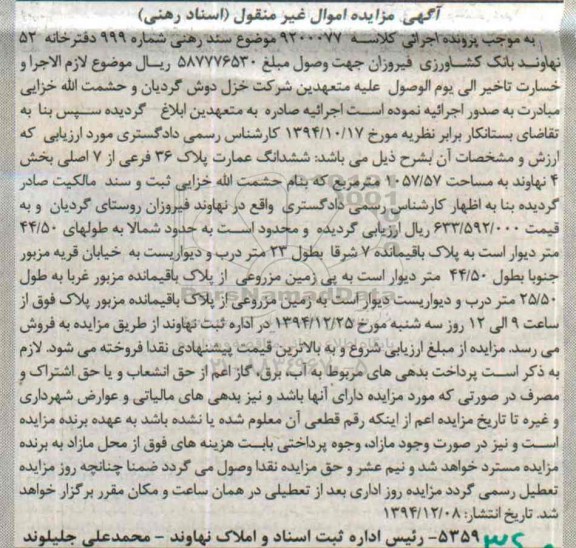 آگهی مزایده اموال غیر منقول (اسناد رهنی)
به موجب پرونده اجرائی کلاسه ۹۲۰۰۰۷۷ موضوع سند رهنی شماره ۹۹۹ دفترخانه ۵۲
نهاوند بانک کشاورزی فیروزان جهت وصول مبلغ ۵۸۷۷۷۶۵۳۰ ریال موضوع لازم الاجرا و
خسارت تاخیر الی یوم الوصول علیه متعهدین شرکت خزل دوش گردیان و حشمت الله خزایی
مبادرت به صدور اجرائیه نموده است اجرائیه صادره به متعهدین ابلاغ گردیده سپس بنا به
تقاضای بستانکار برابر نظریه مورخ ۱۳۹۴/۱۰/۱۷ کارشناس رسمی دادگستری مورد ارزیابی که
ارزش و مشخصات آن بشرح ذیل می باشد: ششدانگ عمارت پلاک ۳۶ فرعی از ۷ اصلی بخش
۴ نهاوند به مساحت ۱۰۵۷/۵۷ مترمربع که بنام حشمت الله خزایی ثبت و سند مالکیت صادر
گردیده بنا به اظهار کارشناس رسمی دادگستری واقع در نهاوند فیروزان روستای گردیان و به
قیمت ۶۳۳/۵۹۲/۰۰۰ ریال ارزیابی گردیده و محدود است به حدود شمالا به طولهای ۴۴/۵۰
متر دیوار است به پلاک باقیمانده ۷ شرقا بطول ۲۳ متر درب و دیواریست به خیابان قریه مزبور
جنوبا بطول ۴۴/۵۰ متر دیوار است به پی زمین مزروعی از پلاک باقیمانده مزبور غربا به طول
۲۵/۵۰ متر درب و دیواریست دیوار است به زمین مزروعی از پلاک باقیمانده مزبور پلاک فوق از
ساعت ۹ الی ۱۲ روز سه شنبه مورخ ۱۳۹۴/۱۲/۲۵ در اداره ثبت نهاوند از طریق مزایده به فروش
می رسد. مزایده از مبلغ ارزیابی شروع و به بالاترین قیمت پیشنهادی نقدا فروخته می شود. لازم
به ذکر است پرداخت بدهی های مربوط به آب، برق، گاز اعم از حق انشعاب و یا حق اشتراک و
مصرف در صورتی که مورد مزایده دارای آنها باشد و نیز بدهی های مالیاتی و عوارض شهرداری
و غیره تا تاریخ مزایده اعم از اینکه رقم قطعی آن معلوم شده یا نشده باشد به عهده برنده مزایده
است و نیز در صورت وجود مازاد، وجوه پرداختی بابت هزینه های فوق از محل مازاد به برنده
مزایده مسترد خواهد شد و نیم عشر و حق مزایده نقدا وصول می گردد ضمنا چنانچه روز مزایده
تعطیل رسمی گردد مزایده روز اداری بعد از تعطیلی در همان ساعت و مکان مقرر برگزار خواهد
شد. تاریخ انتشار: ۱۳۹۴/۱۲/۰۸
۵۳۵۹- رئیس اداره ثبت اسناد و املاک نهاوند - محمدعلی جلیلوند